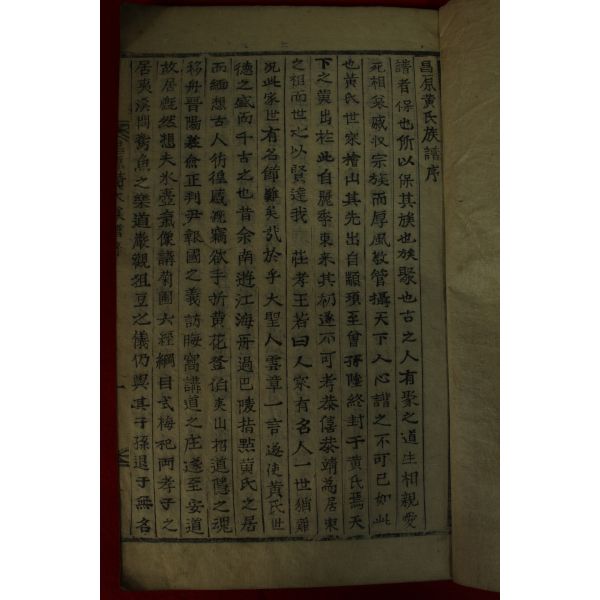 昌原黃氏族譜序
譜者保也所以保其族也族聚也古之人有聚之道生相親愛
死相哀戚収宗族而厚風敎管攝天下人心譜之不可已如此
也黃氏世家檜山其先出自顓頊至曾孫陸終封于黃氏焉天
下之黃出於此自麗季東來其初遂不可考恭僖恭靖爲居東
之祖而世世以賢達我 莊孝王若曰人家有名人一世猶難
况此家世有名節難矣哉於乎大聖人雲章一言遂使黃氏世
德之盛而千古之也昔余南遊江海哥過巴陵指點黃氏之居
而緬想古人彷徨感 竊欲手折黃花登伯夷山招道隱之魂
移舟晋陽 正判尹報國之義訪晦窩講道之庄遂至安道
故居旣然想夫氷壺氣像講菊圃六經綱目式梅祀兩孝子之
居夷溪判 魚之樂道巖觀俎豆之儀仍與其子孫退于無名